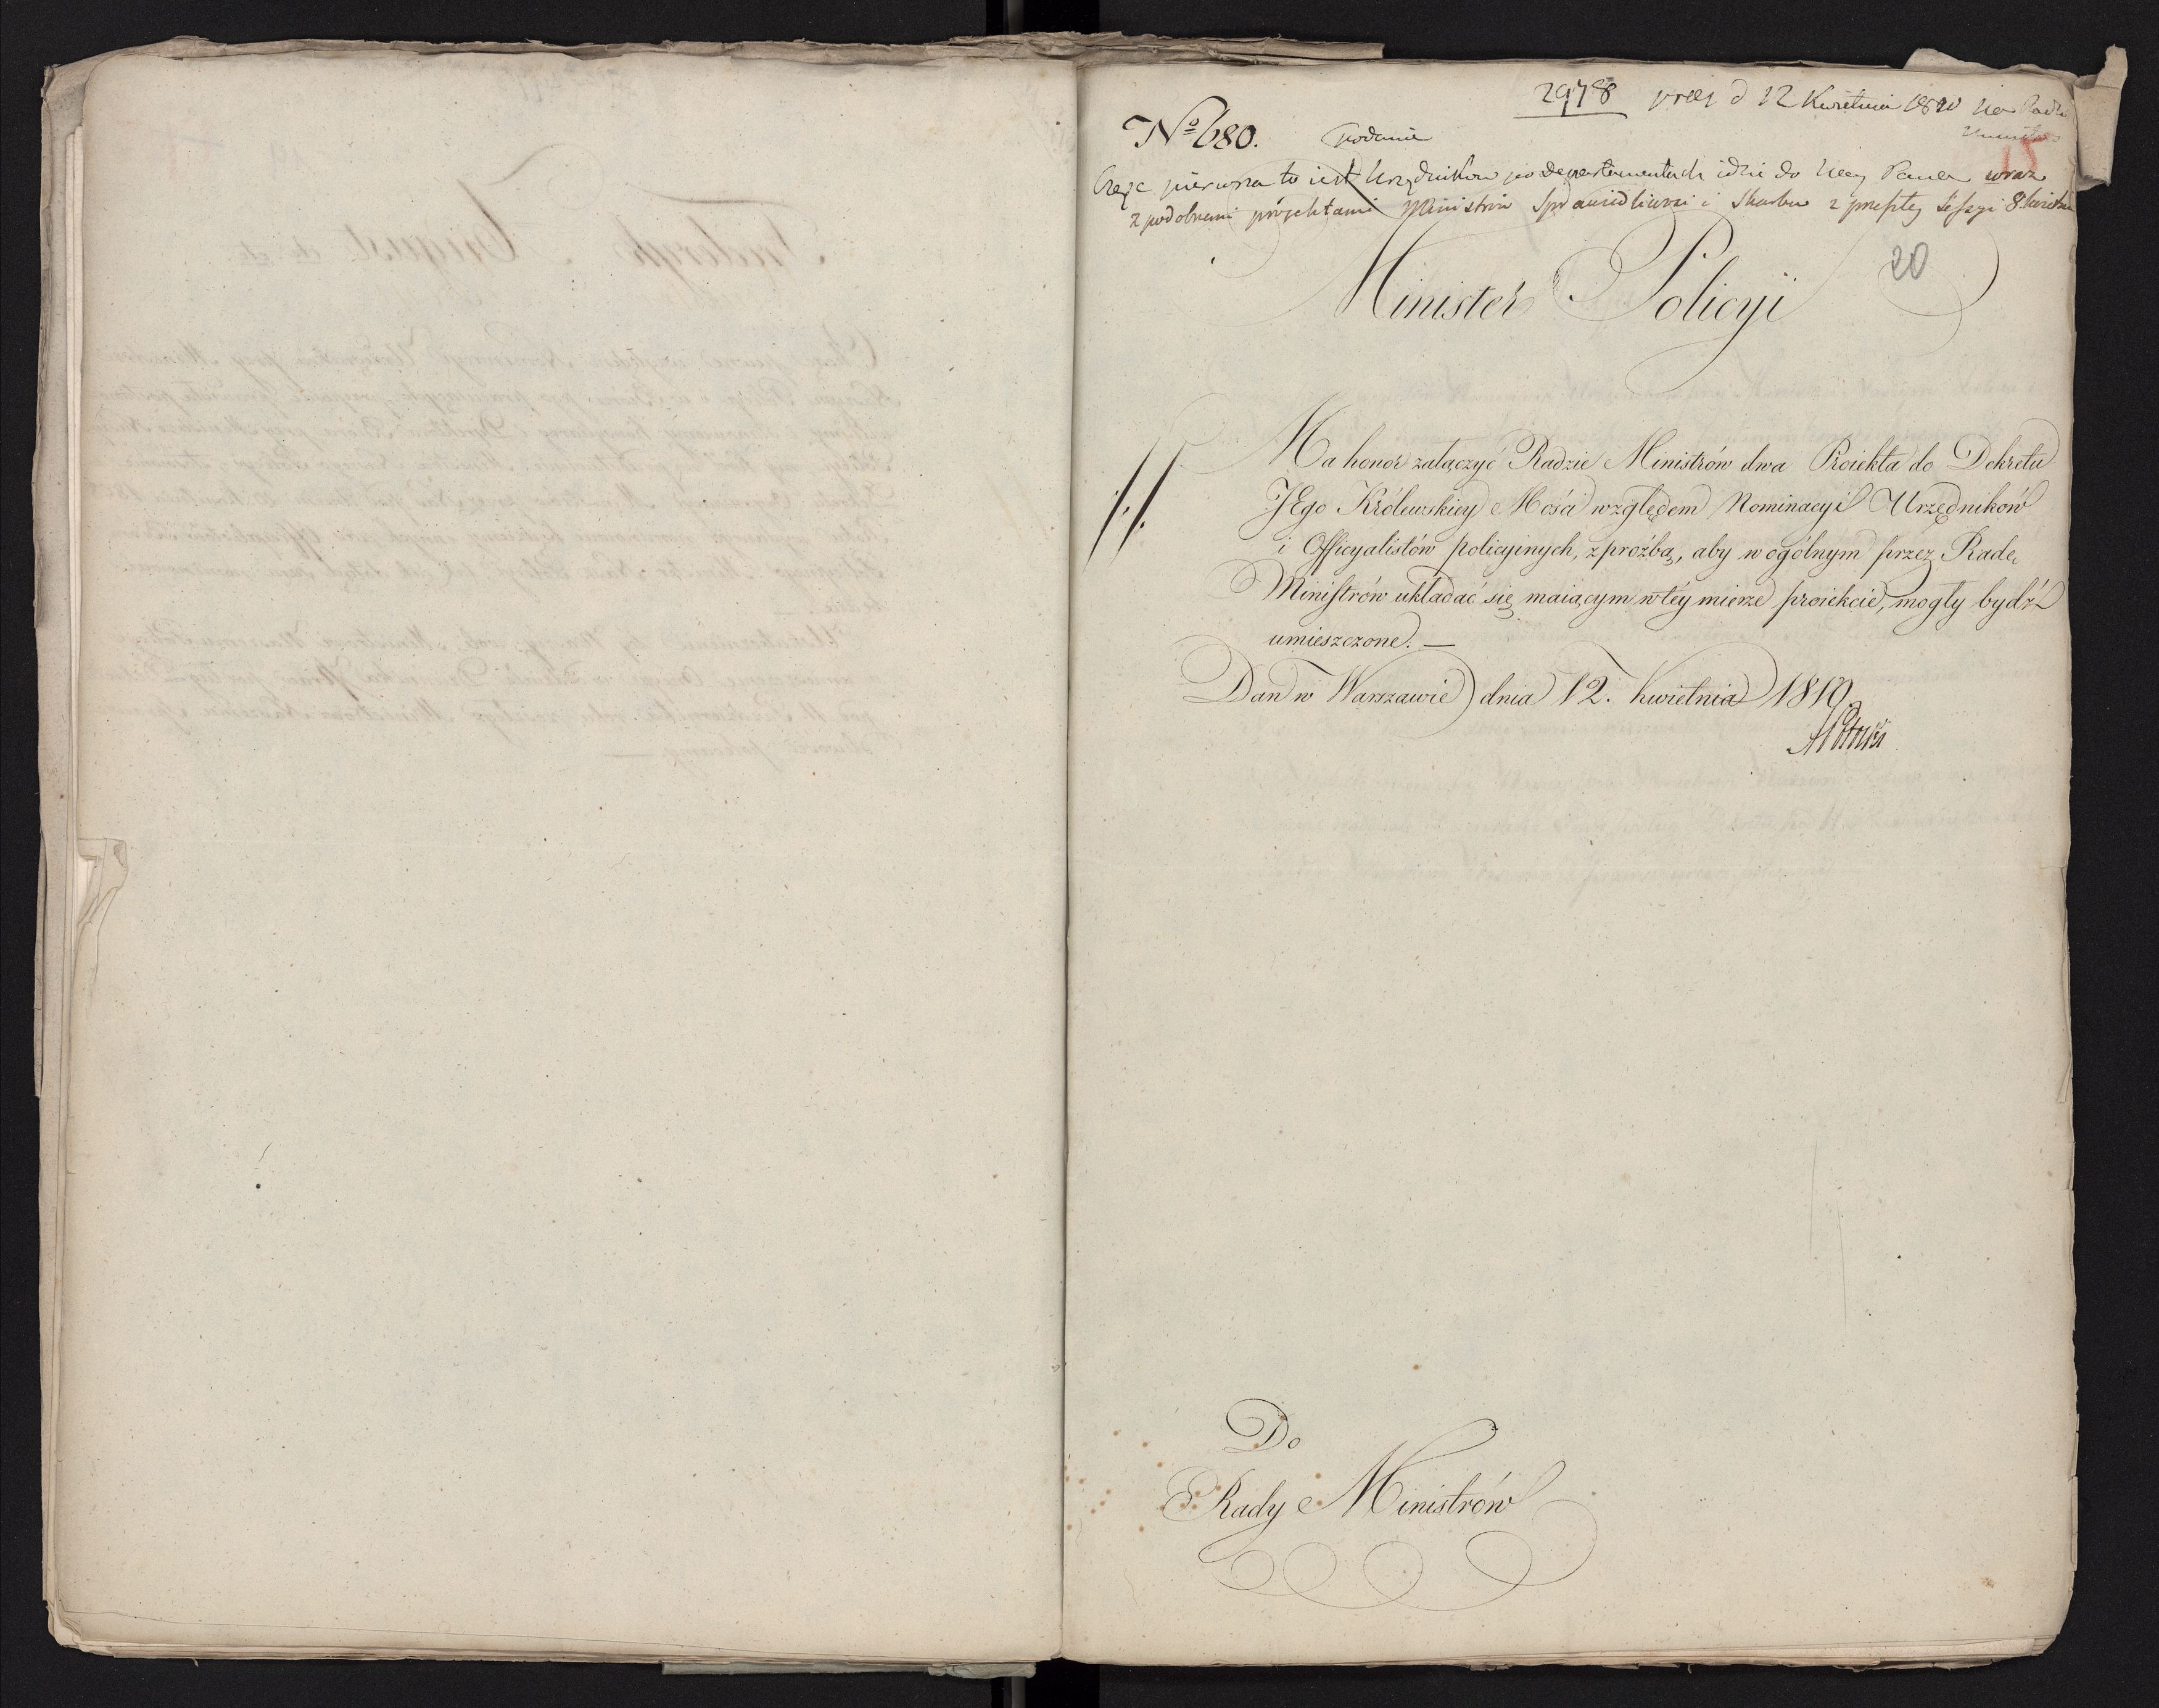 2978 prez d 12 Kwietnia 1810 na Radzie
Ministrów
No 680. podanie
15
Część pierwsza to iest Urzędników po Departamentach idzie do Nay Pana wraz
z podobnemi projektami Ministrów Sprawiedliwości i Skarbu z przeszłey Sessyi 8 kwietnia
20
Minister Policyi
Ma honor załączyć Radzie Ministrów dwa Proiekta do Dekretu
JEgo Królewskiey Mości względem Nominacyi Urzędników
i Officyalistów policyinych, z proźbą, aby w ogólnym przez Radę
Ministrów układać się maiącym w téy mierze proiekcie, mogły bydź
umieszczone. —
Dan w Warszawie dnia 12. Kwietnia 1810.
Do
Rady Ministrów